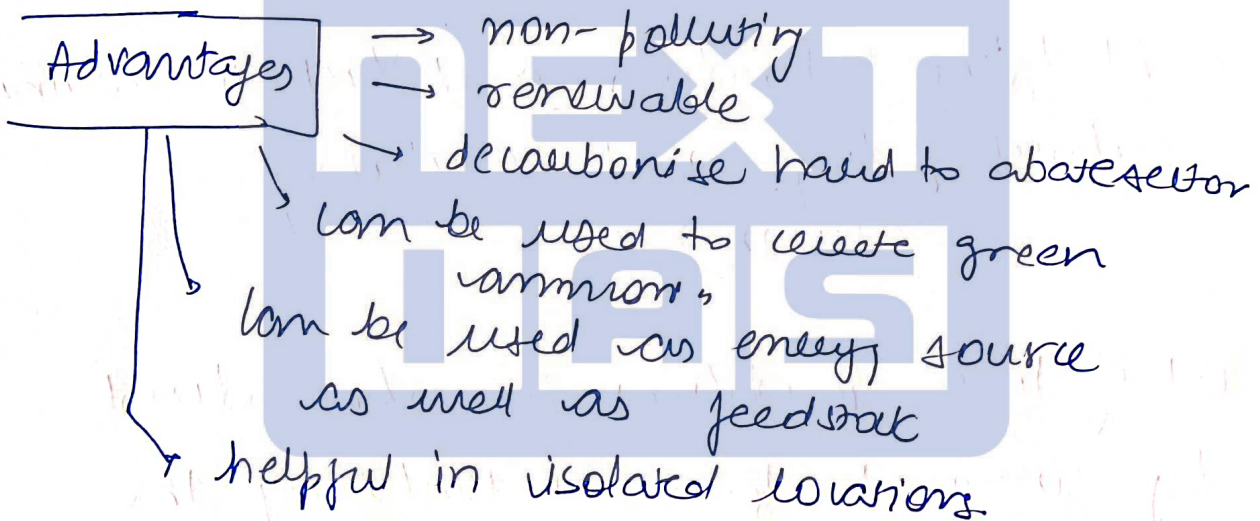 Advantages
→ non-polluting
→ renewable
→ decarbonise hard to abate sector
→ can be used to create green
ammonia
→ can be used as energy source
as well as feedstock
→ helpful in isolated locations
NEXT
IAS